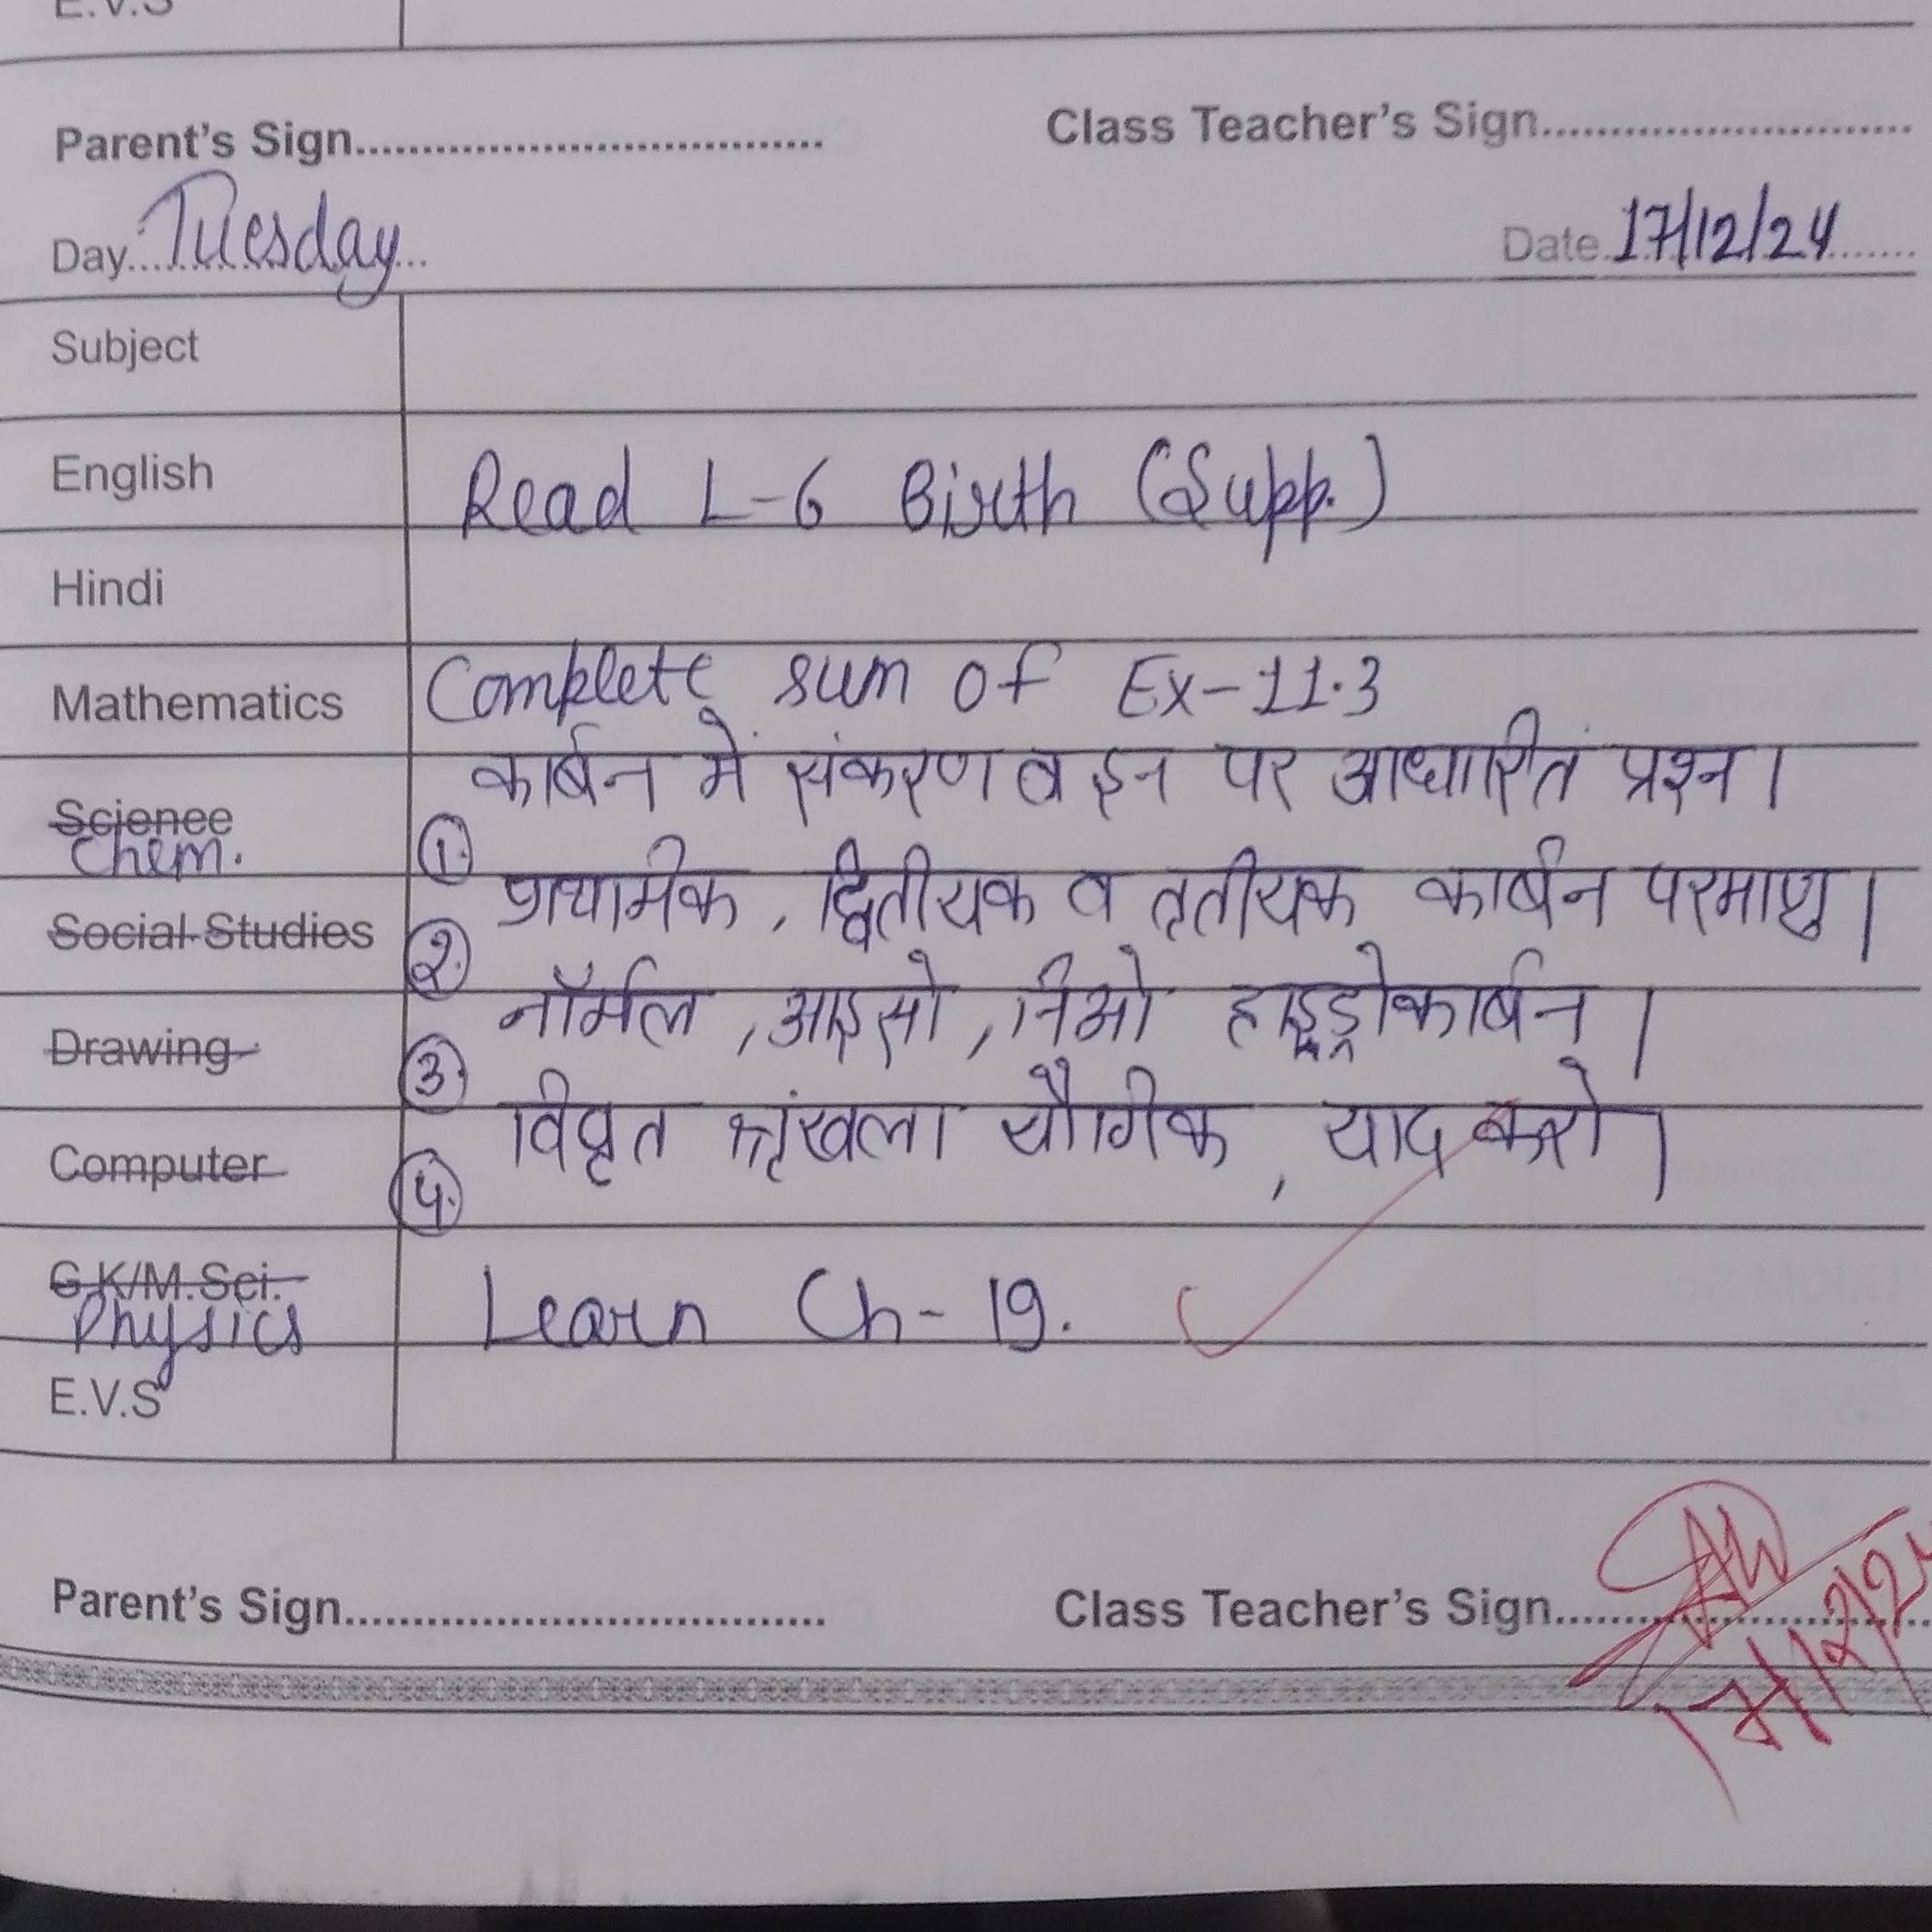 E.V.S
Parent's Sign.................................... Class Teacher's Sign............................
Day...Tuesday... Date.17/12/24.......
Subject
English Read L-6 Birth (Supp.)
Hindi
Mathematics Complete sum of Ex-11.3
Science Chem. ① कार्बन में संकरण व इन पर आधारित प्रश्न।
Social Studies ② प्राथमिक, द्वितीयक व तृतीयक कार्बन परमाणु।
Drawing ③ नॉर्मल, आइसो, निओ हाइड्रोकार्बन।
Computer ④ विवृत श्रृंखला यौगिक, याद करो।
G.K/M.Sci. Physics Learn Ch-19.
E.V.S
Parent's Sign.................................... Class Teacher's Sign............................
17/12/24